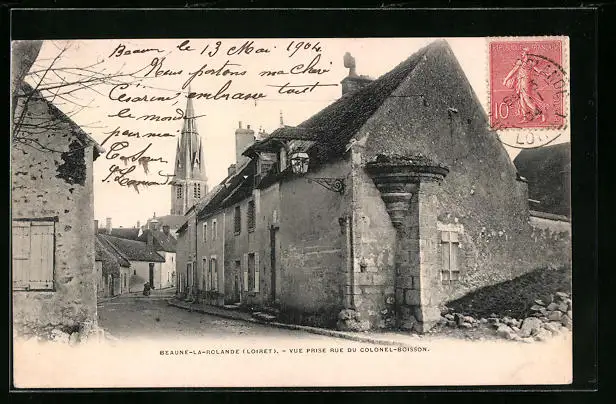 Beaune le 13 Mai 1904
Nous partons ma chère
Césarine embrasse tout
le monde
pour moi
REPUBLIQUE FRANÇAISE
10
LOIRET
BEAUNE-LA-ROLANDE (LOIRET). - VUE PRISE RUE DU COLONEL-BOISSON.